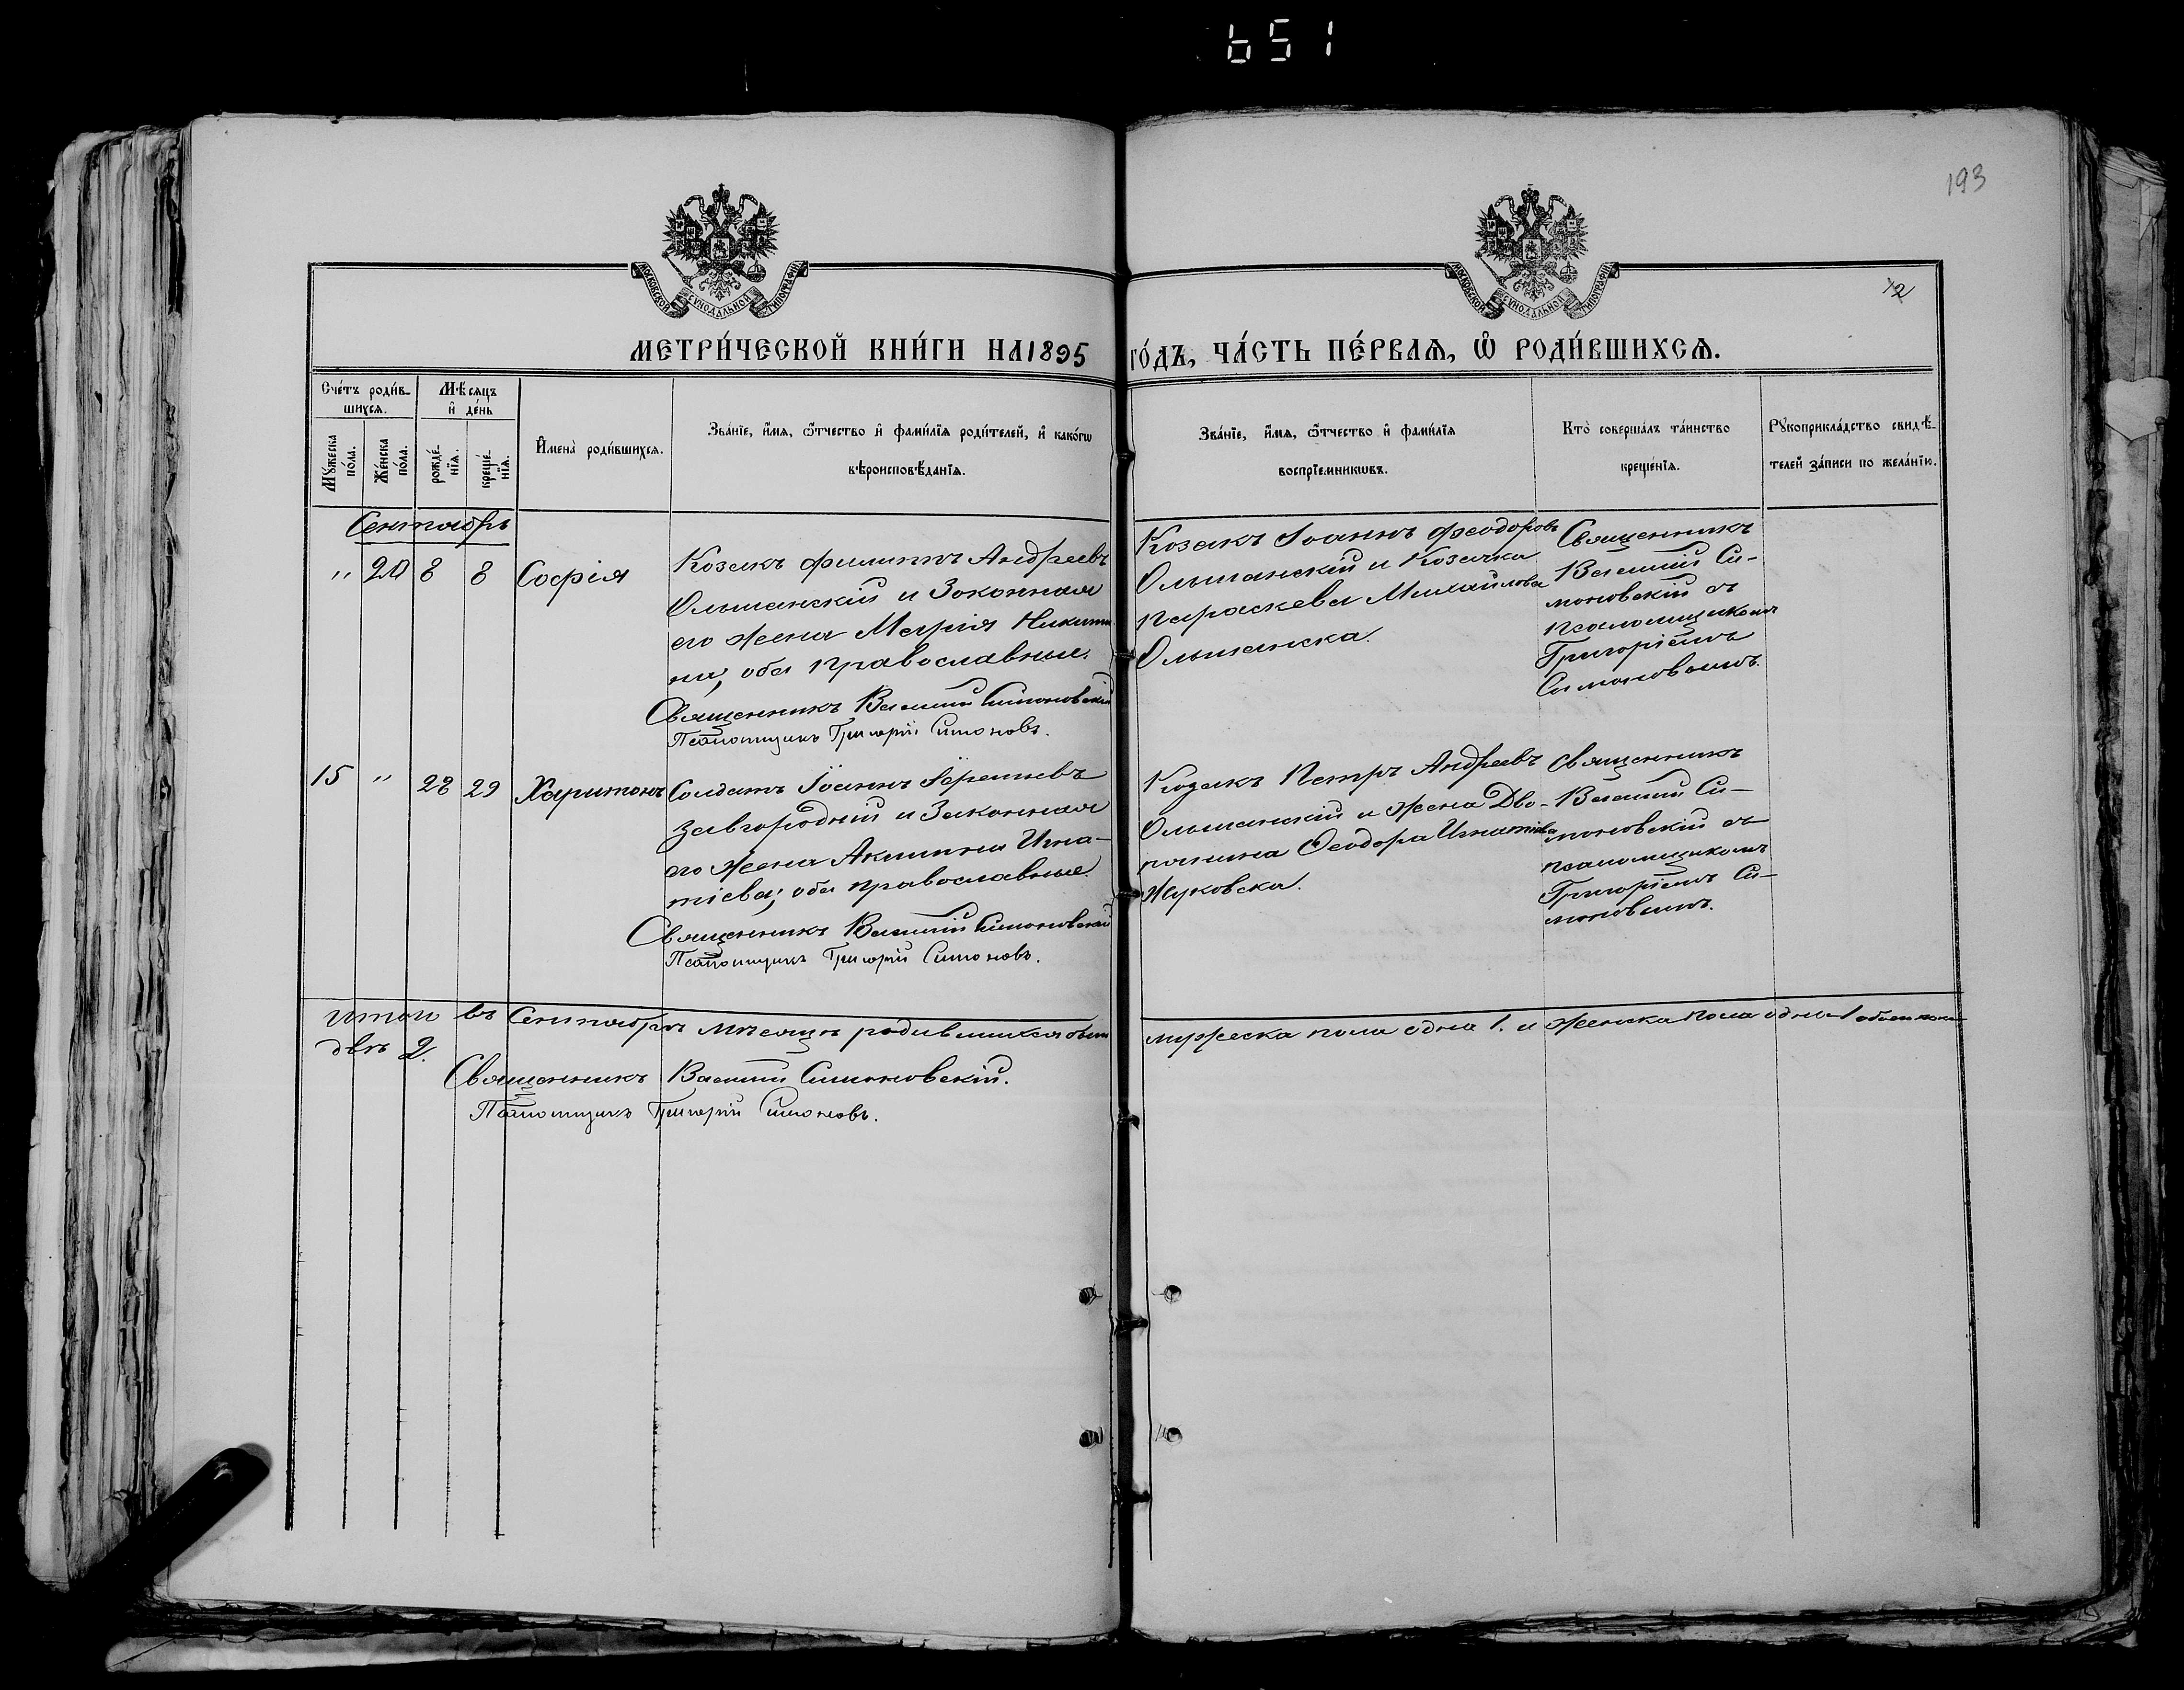 651
193
12
МОСКОВСКОЙ СѴНОДАЛЬНОЙ ТИПОГРАФІИ
МОСКОВСКОЙ СѴНОДАЛЬНОЙ ТИПОГРАФІИ
МЕТРИ́ЧЕСКОЙ КНИ́ГИ НА 1895 ГО́ДЪ, ЧА́СТЬ ПЕ́РВАЯ, Ѡ҆ РОДИ́ВШИХСЯ.
Сче́тъ роди́в-
шихся.
Мѣ́сяцъ
и҆ де́нь
Мꙋ́жеска
по́ла.
Же́нска
по́ла.
рожде́-
нїѧ.
креще́-
нїѧ.
И҆мена̀ роди́вшихсѧ.
Зва́нїе, и҆́мѧ, ѻ҆́тчество и҆ фами́лїѧ роди́телей, и҆ како́гѡ
вѣроисповѣ́данїѧ.
Зва́нїе, и҆́мѧ, ѻ҆́тчество и҆ фами́лїѧ
воспрїе́мникѡвъ.
Кто̀ соверша́лъ та́инство
креще́нїѧ.
Рꙋкоприкла́дство свидѣ́-
телей за́писи по жела́нїю.
Сентябрь
" 20 8 8 Софія
Козакъ Филиппъ Андреевъ
Ольшанскій и Законная
его жена Марія Никити
на, оба православные.
Священникъ Василій Симоновскій
Псаломщикъ Григорій Симоновъ.
Козакъ Іоаннъ Феодоровъ
Ольшанскій и Козачка
Параскева Михайлова
Ольшанска.
Священникъ
Василій Си-
моновскій съ
псаломщикомъ
Григоріемъ
Симоновымъ.
15 " 28 29 Харитонъ
Солдатъ Іоаннъ Іереміевъ
Завгородній и Законная
его жена Акилина Игна-
тіева; оба православные.
Священникъ Василій Симоновскій
Псаломщикъ Григорій Симоновъ.
Козакъ Петръ Андреевъ
Ольшанскій и жена Дво-
рянина Ѳеодора Игнатіева
Жуковска.
Священникъ
Василій Си-
моновскій съ
псаломщикомъ
Григоріемъ Си-
моновымъ.
Итого въ Сентябрѣ мѣсяцѣ родившихся мужеска пола одна 1. и женска пола одна 1 обоего пола
двѣ 2.
Священникъ Василій Симоновскій.
Псаломщикъ Григорій Симоновъ.